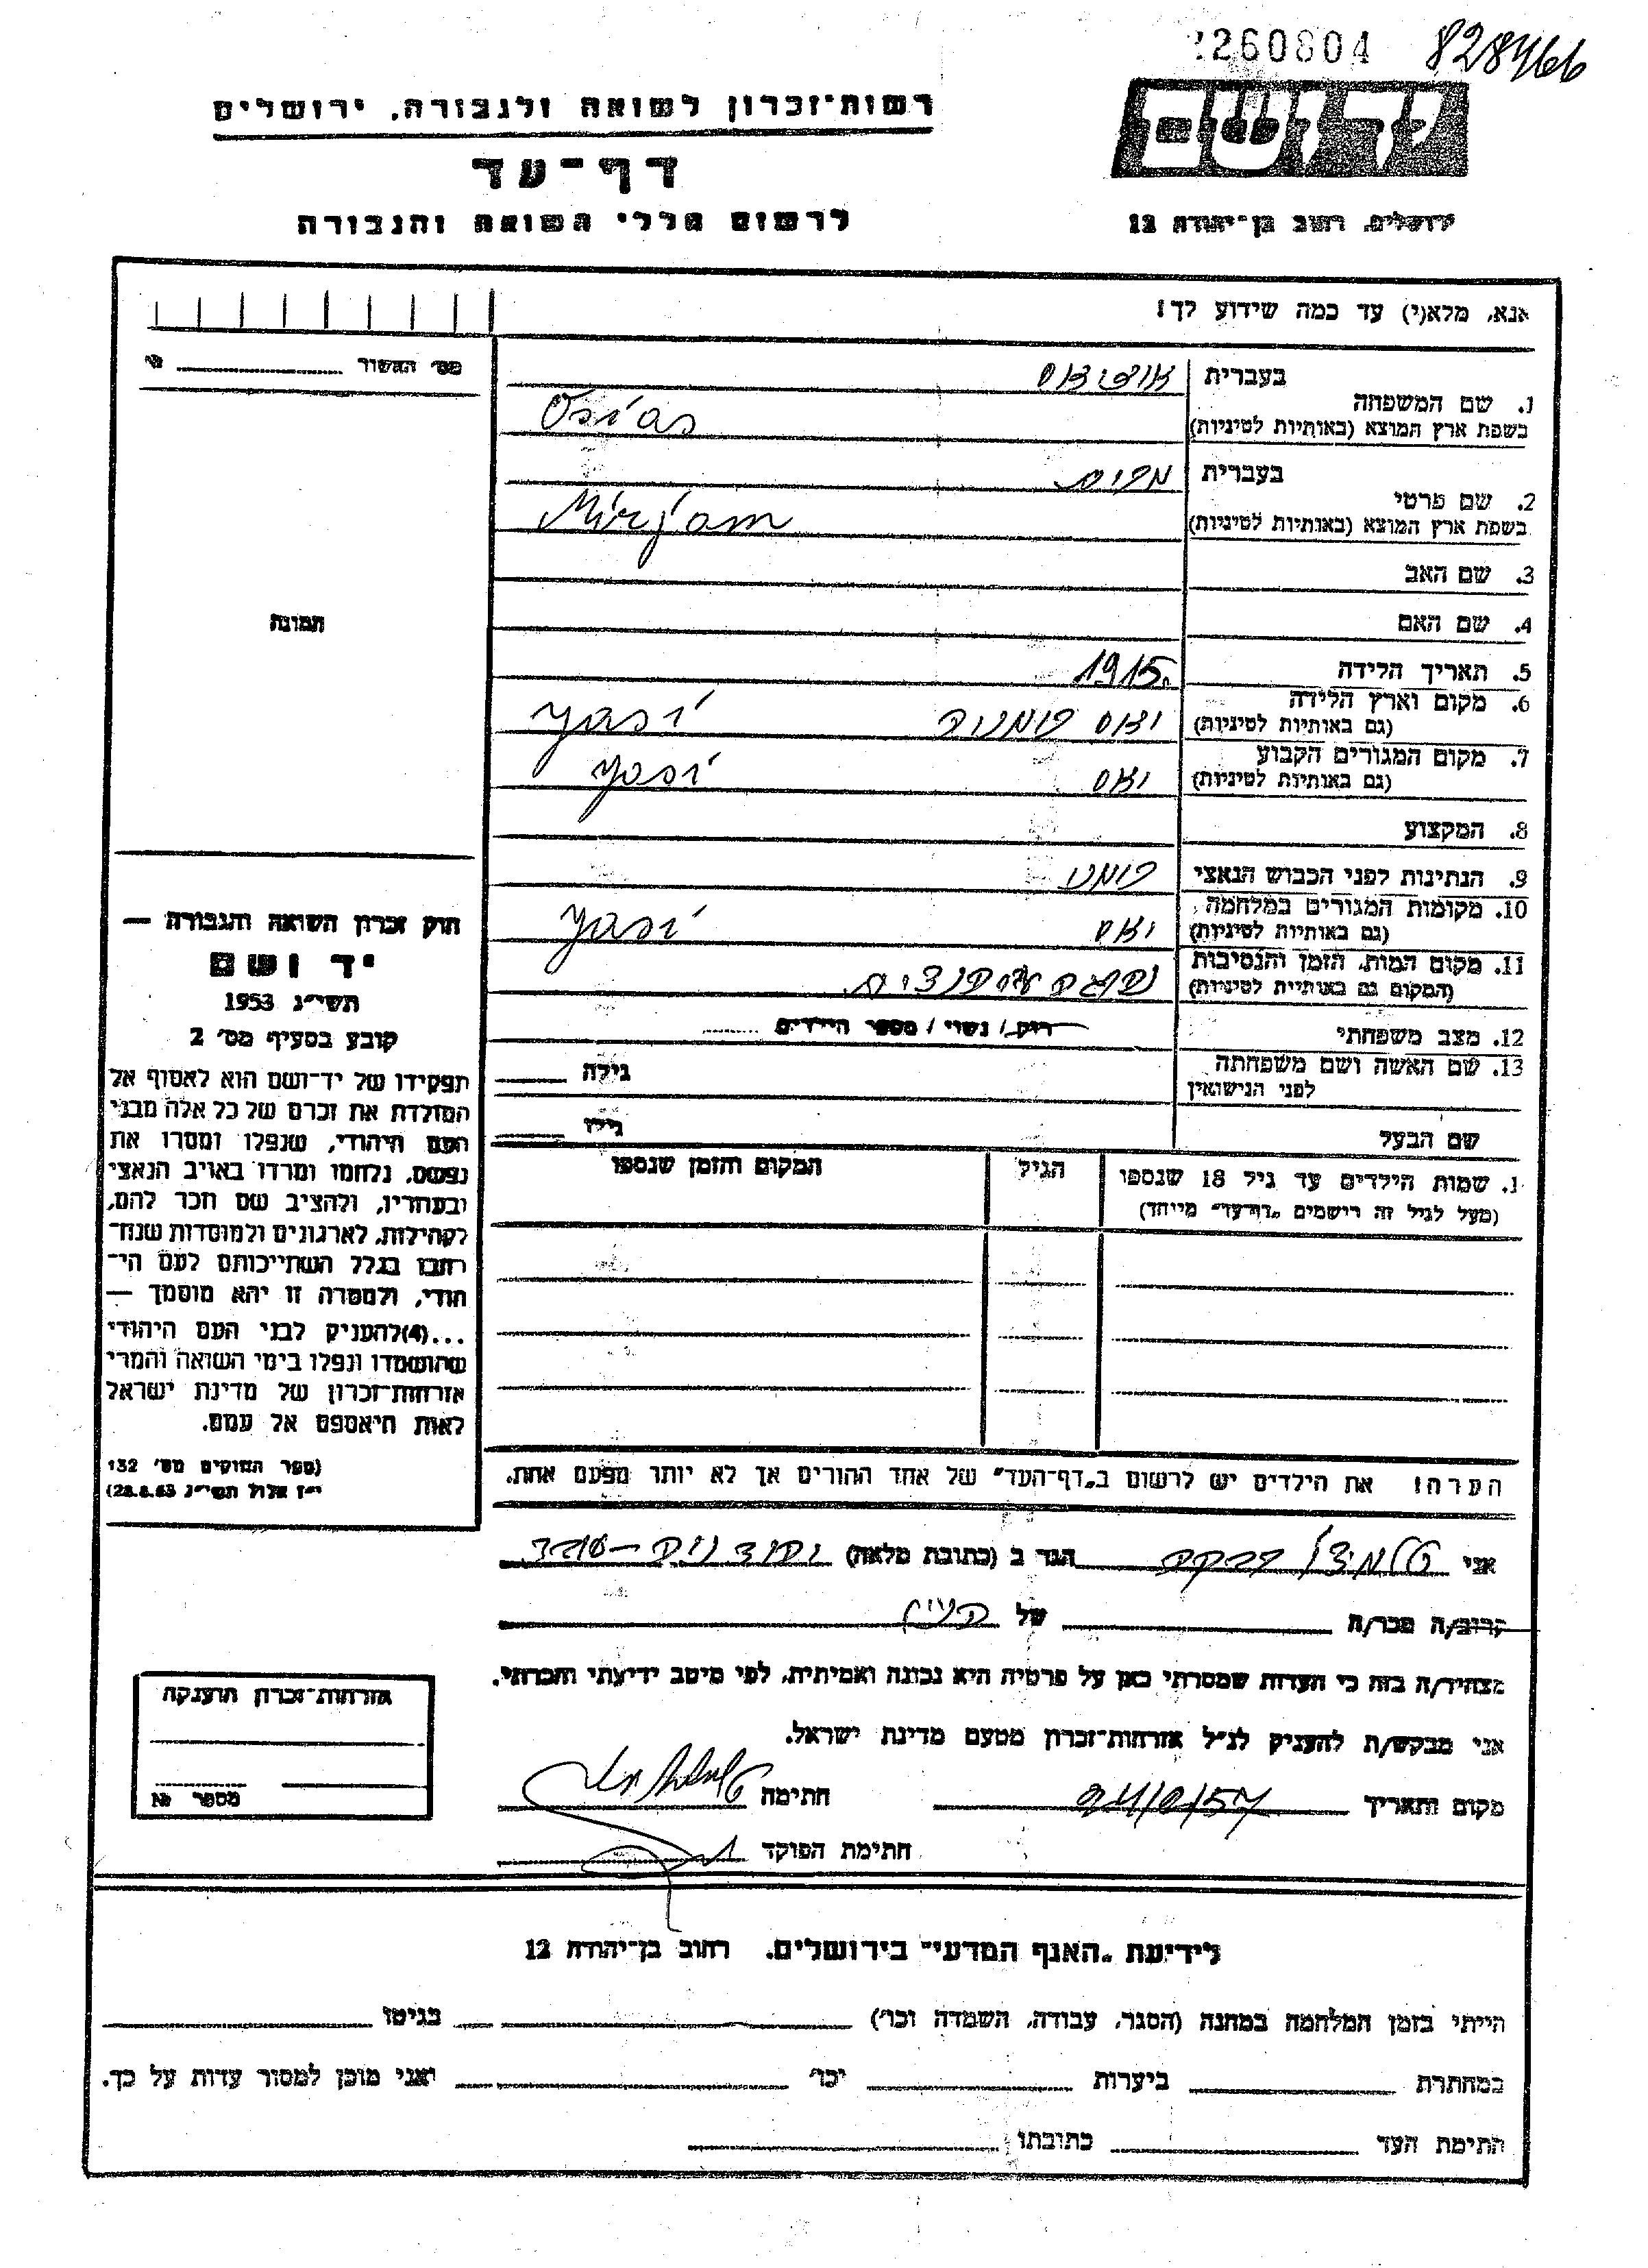 260804 828466
יד ושם
רשות־זכרון לשואה ולגבורה, ירושלים
דף־עד
לרשום חללי השואה והגבורה
ירושלים, רחוב בן־יהודה 12
אנא, מלא(י) עד כמה שידוע לך!
מס' האשור
בעברית
1. שם המשפחה
בשפת ארץ המוצא (באותיות לטיניות) Osias
בעברית מרים
2. שם פרטי
בשפת ארץ המוצא (באותיות לטיניות) Mirjam
3. שם האב
4. שם האם
5. תאריך הלידה 1915
6. מקום וארץ הלידה
(גם באותיות לטיניות) יאס רומניה Yasi
7. מקום המגורים הקבוע
(גם באותיות לטיניות) יאס Yasi
8. המקצוע
9. הנתינות לפני הכבוש הנאצי רומני
10. מקומות המגורים במלחמה
(גם באותיות לטיניות) יאס Yasi
11. מקום המות, הזמן והנסיבות
(המקום גם באותיית לטיניות)
12. מצב משפחתי רווק / נשוי / מספר הילדים
13. שם האשה ושם משפחתה
לפני הנישואין
גילה
שם הבעל גילו
שמות הילדים עד גיל 18 שנספו הגיל המקום והזמן שנספו
(מעל לגיל זה רישמים „דף־עד" מייחד)
הערה! את הילדים יש לרשום ב„דף־העד" של אחד ההורים אך לא יותר מפעם אחת.
תמונה
חוק זכרון השואה והגבורה —
יד ושם
תשי״ג 1953
קובע בסעיף מס' 2
תפקידו של יד־ושם הוא לאסוף אל
המולדת את זכרם של כל אלה מבני
העם היהודי, שנפלו ומסרו את
נפשם, נלחמו ומרדו באויב הנאצי
ובעוזריו, ולהציב שם וזכר להם,
לקהילות, לארגונים ולמוסדות שנח־
רבו בגלל השתייכותם לעם הי־
הודי, ולמטרה זו יהא מוסמך —
...(4)להעניק לבני העם היהודי
שהושמדו ונפלו בימי השואה והמרי
אזרחות־זכרון של מדינת ישראל
לאות היאספם אל עמם.
(ספר החוקים מס' 132
י״ז אלול תשי״ג 28.8.53)
אני הגר ב (כתובת מלאה)
קרוב/ה מכר/ה של
מצהיר/ה בזה כי העדות שמסרתי כאן על פרטיה היא נכונה ואמיתית, לפי מיטב ידיעתי והכרתי.
אני מבקש/ת להעניק לנ״ל אזרחות־זכרון מטעם מדינת ישראל.
מקום ותאריך חתימה
חתימת הפוקד
אזרחות־זכרון הוענקה
מספר №
לידיעת „האגף המדעי" בירושלים, רחוב בן־יהודה 12
הייתי בזמן המלחמה במחנה (הסגר, עבודה, השמדה וכו') בגיטו
במחתרת ביערות וכו' ואני מוכן למסור עדות על כך.
חתימת העד כתובתו